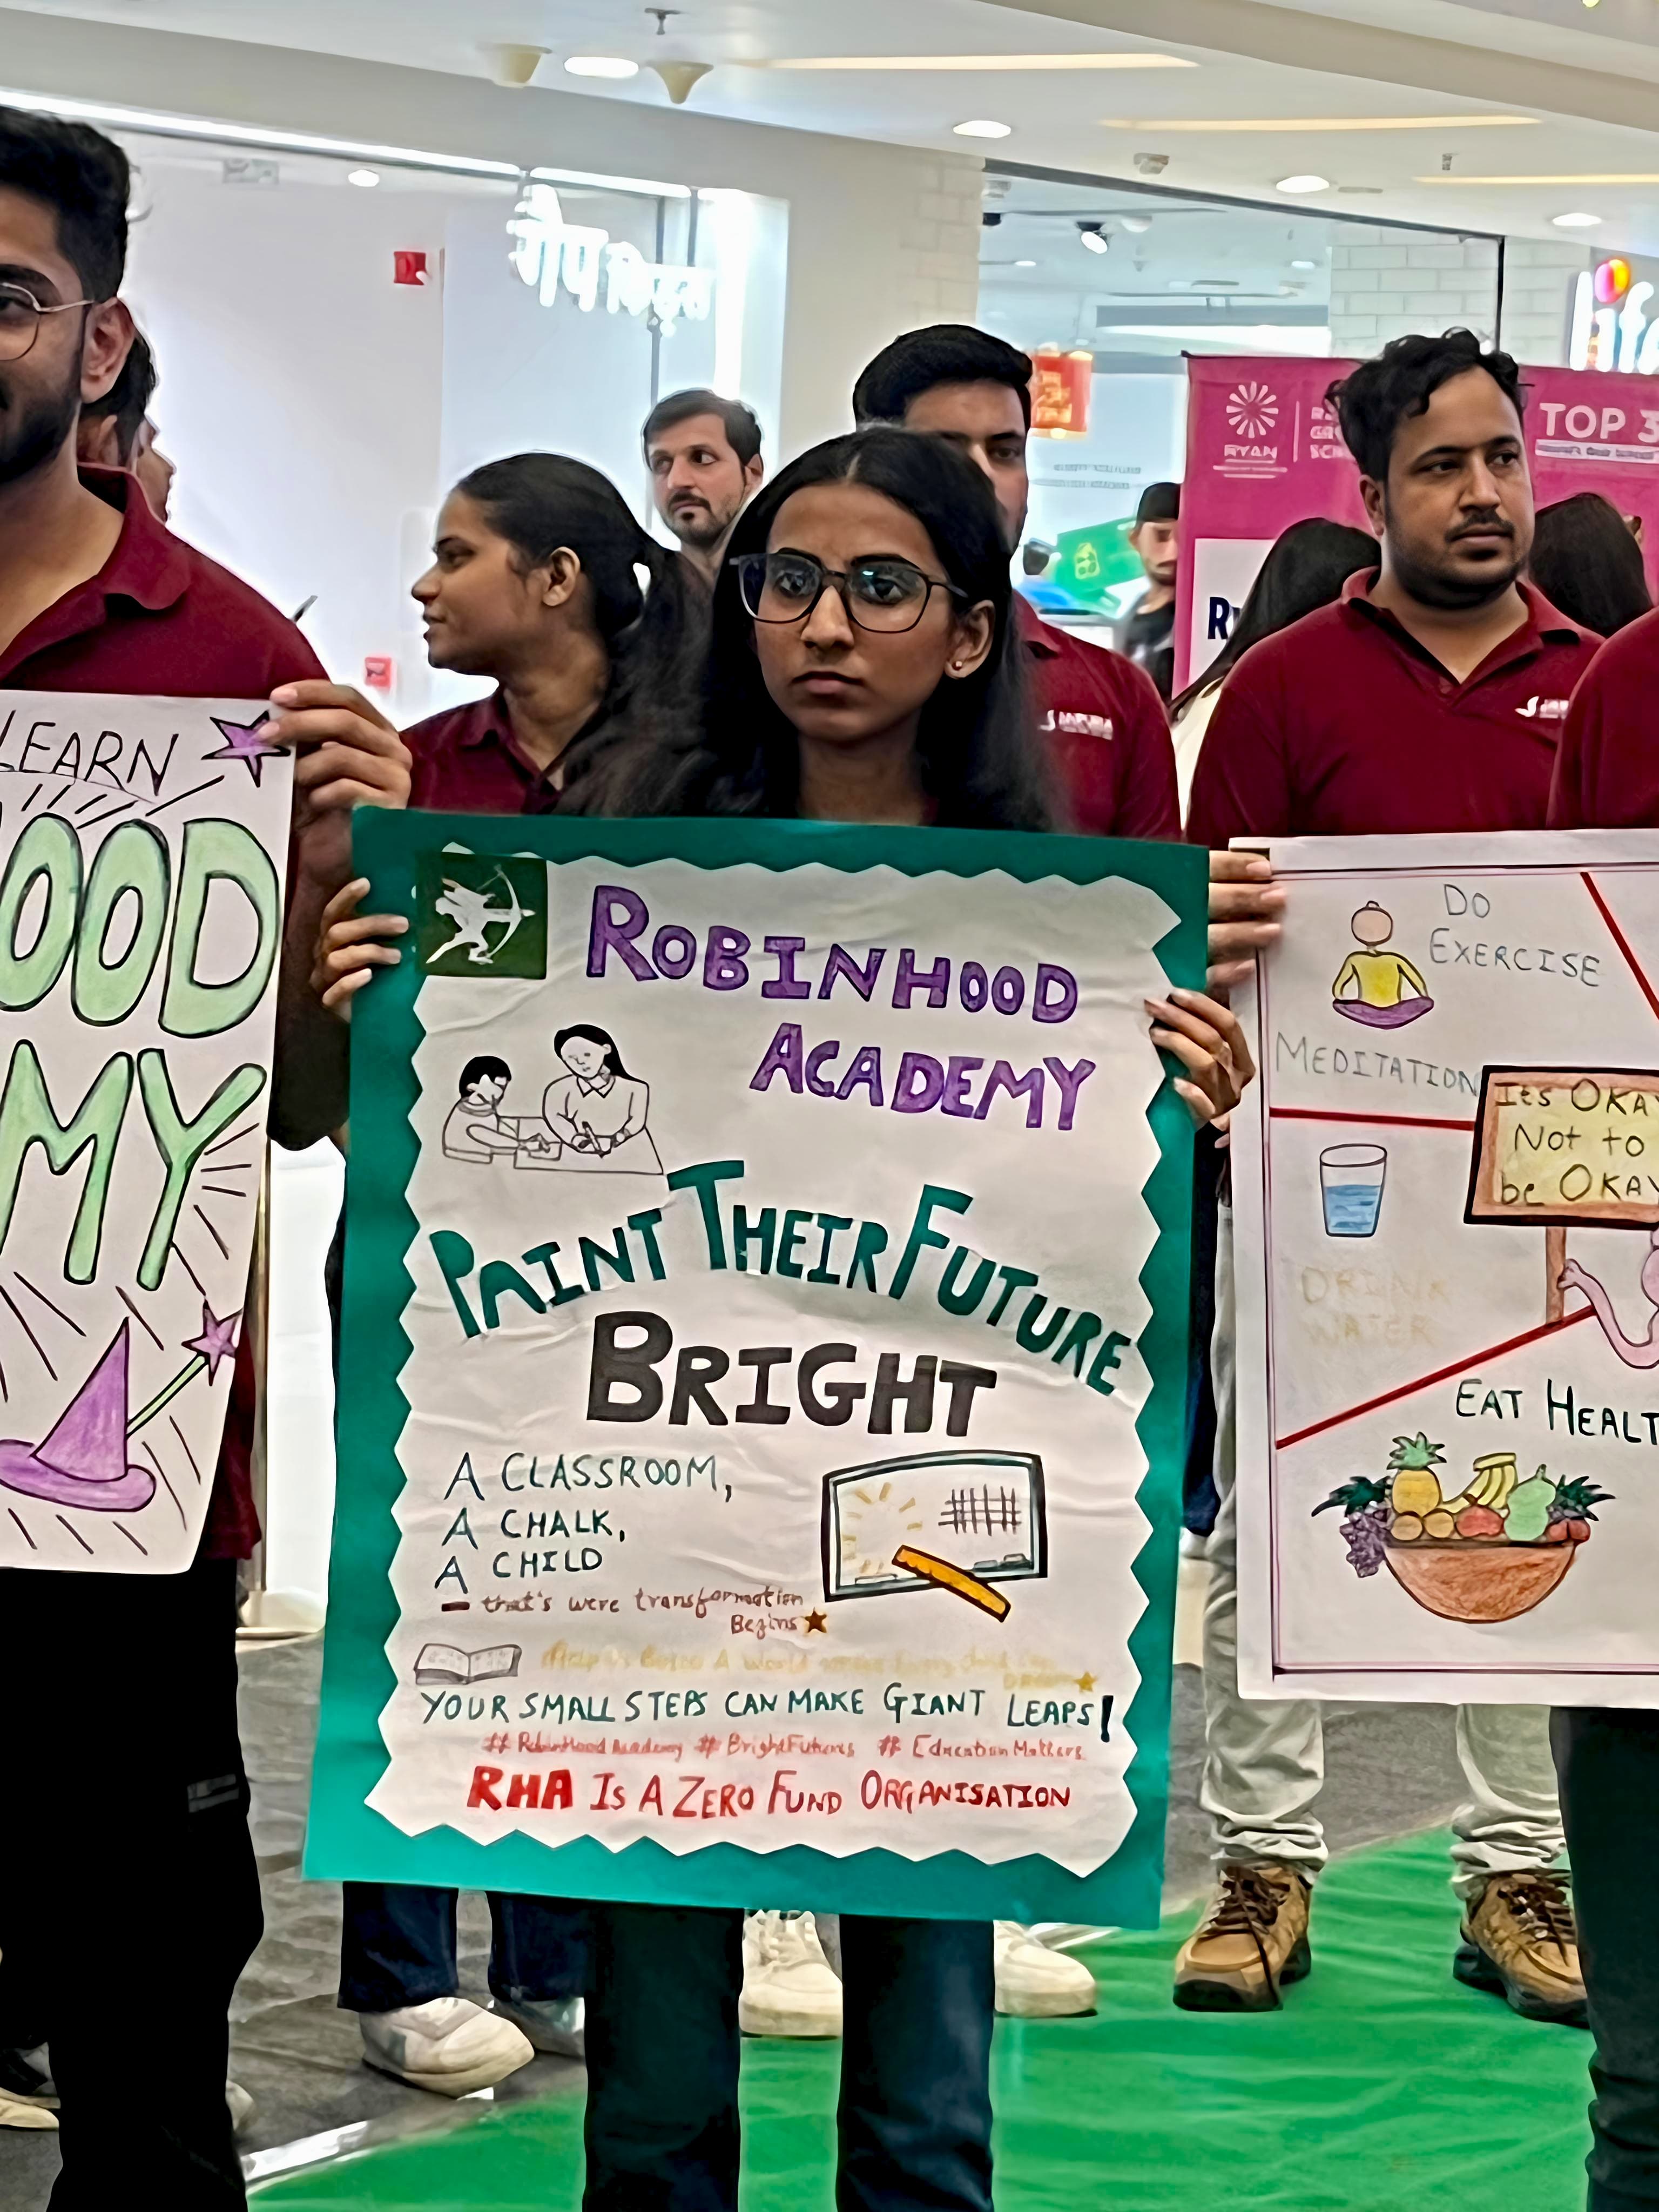 गैप किड्स
RYAN
TOP 3
LEARN
OOD
MY
ROBINHOOD
ACADEMY
PAINT THEIR FUTURE
BRIGHT
A CLASSROOM,
A CHALK,
A CHILD
- that's were transformation
Begins
Help Us Build A World where Every child
YOUR SMALL STEPS CAN MAKE GIANT LEAPS!
# RobinHood Academy # BrightFutures # Education Matters
RHA IS A ZERO FUND ORGANISATION
DO
EXERCISE
MEDITATION
Its OKAY
Not to
be OKAY
DRINK
WATER
EAT HEALT